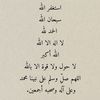 استغفر الله
سبحان الله
الحمد لله
لا اله الا الله
الله أكبر
لا حول ولا قوة الا بالله
اللهم صلّ وسلم على نبينا محمد
وعلى آله وصحبه أجمعين.